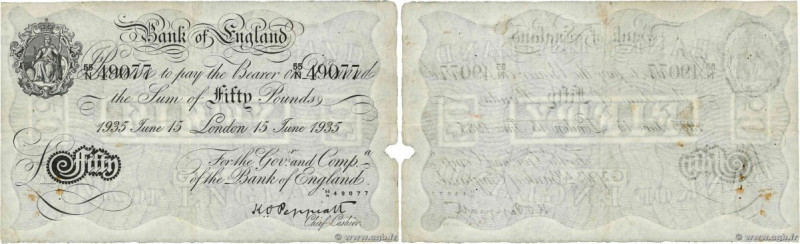 Bank of England
55/N 49077 55/N 49077
to pay the Bearer on
the Sum of Fifty Pounds
1935 June 15 London 15 June 1935
Fifty
For the Gov.r and Comp.a
of the Bank of England.
55/N 49077
K.O. Peppiatt
Chief Cashier
www.cgb.fr